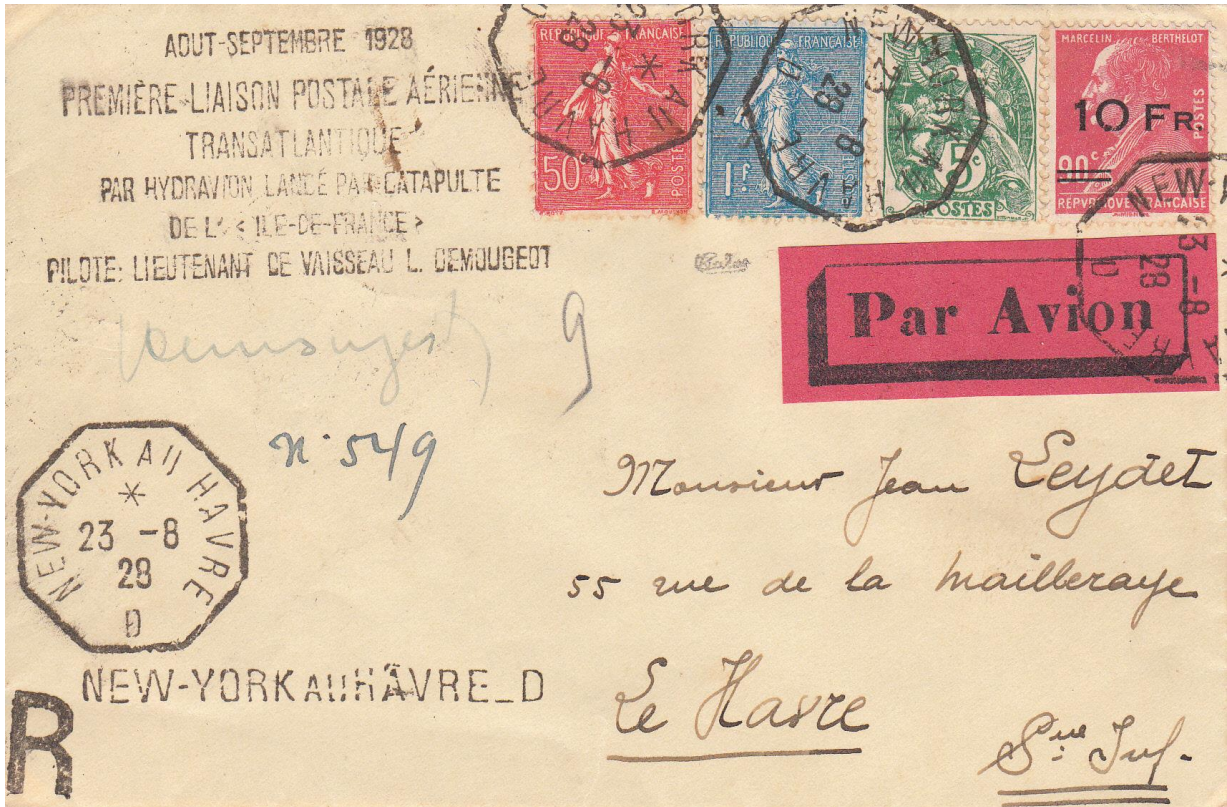 AOUT-SEPTEMBRE 1928
PREMIÈRE LIAISON POSTALE AÉRIENNE
TRANSATLANTIQUE
PAR HYDRAVION LANCÉ PAR CATAPULTE
DE L' < ILE-DE-FRANCE >
PILOTE: LIEUTENANT DE VAISSEAU L. DEMOUGEOT
RÉPUBLIQUE FRANÇAISE
50c
POSTES
RÉPUBLIQUE FRANÇAISE
1F
POSTES
5c
POSTES
MARCELIN BERTHELOT
POSTES
10 FR.
90c
REPVBLIQVE FRANÇAISE
NEW-YORK AU HAVRE
23 -8
28
D
Par Avion
Demougeot
9
n° 549
NEW-YORK AU HAVRE
23 -8
28
D
NEW-YORK AU HÂVRE_D
R
Monsieur Jean Leydet
55 rue de la Mailleraye
Le Havre
Sne Inf.